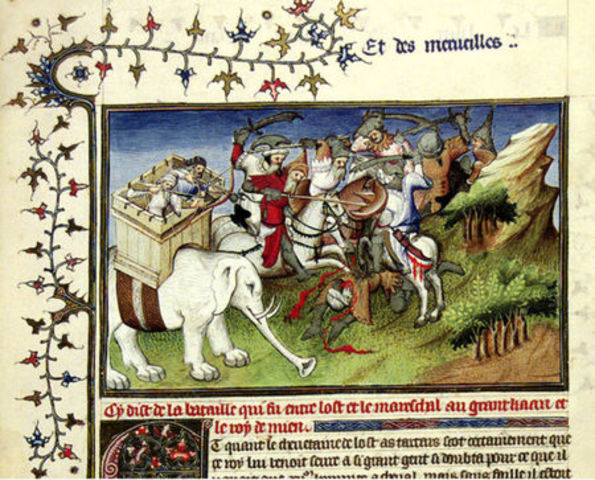 Et des merueilles ..
Cy dist de la bataille qui fu entre lost et le mareschal au grant kaan et
le roy de mien.
Et quant le cheuetaine de lost as tartars scot certainement que
ce roy lui venoit seure a si grant gent si doubta pour ce que il
que hommes a cheual. mais sans faille il estoit